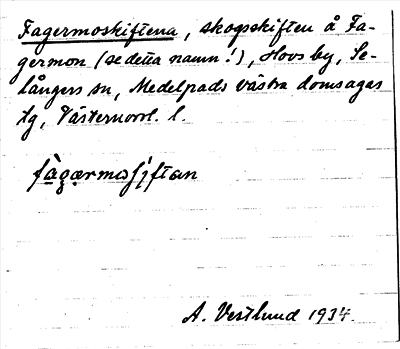 Fagermoskiftena, skogsskiften å Fa-
germon (se detta namn!), Hovs by, Se-
långers sn, Medelpads västra domsagas
tg, Västernorrl. l.
A. Vestlund 1934.